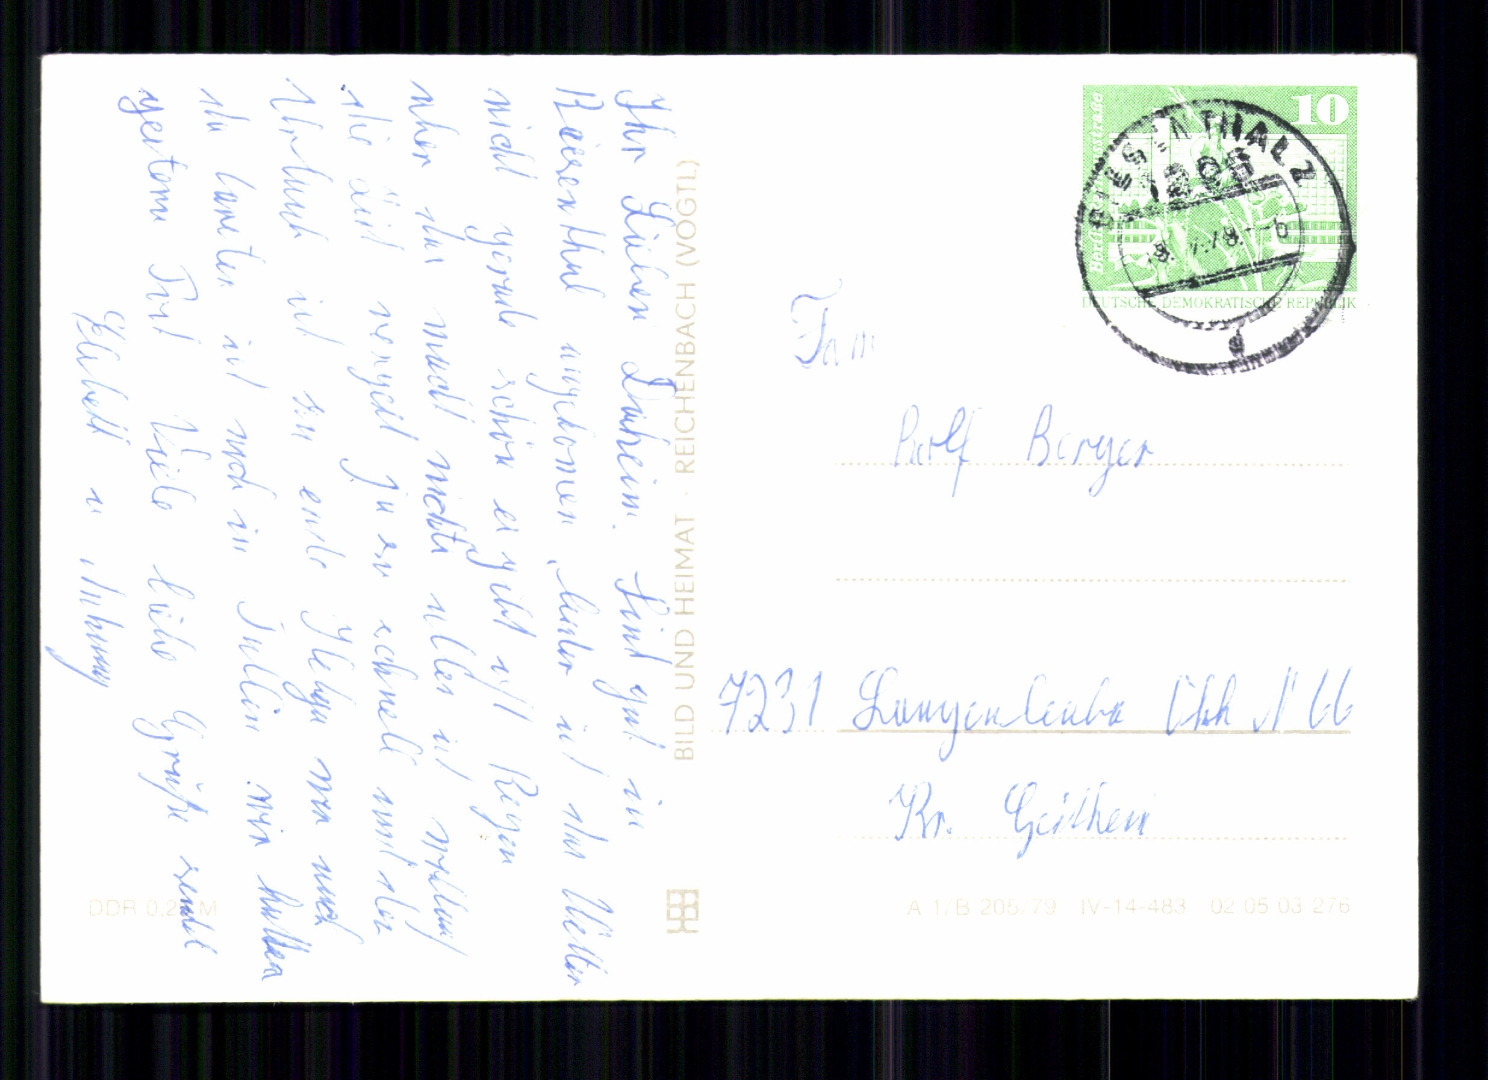 Ihr Lieben Daheim. Sind gut in
Biesenthal angekomen, leider ist das Wetter
nicht gerade schön es gibt oft Regen
aber das macht nichts alles ist wollauf
die Zeit vergeht ja so schnell und der
Urlaub ist zu ende Helga war auch
da Carsten ist noch in wir hatten
gestern Viele liebe Grüße sendet
Herbert u
BILD UND HEIMAT · REICHENBACH (VOGTL)
DDR 0,2 M
10
DEUTSCHE DEMOKRATISCHE REPUBLIK
BIESENTHAL 2
Fam
Rolf Berger
7231 Langenleuba Obh N 66
Kr. Geithein
A 1/B 205/79 IV-14-483 02 05 03 276